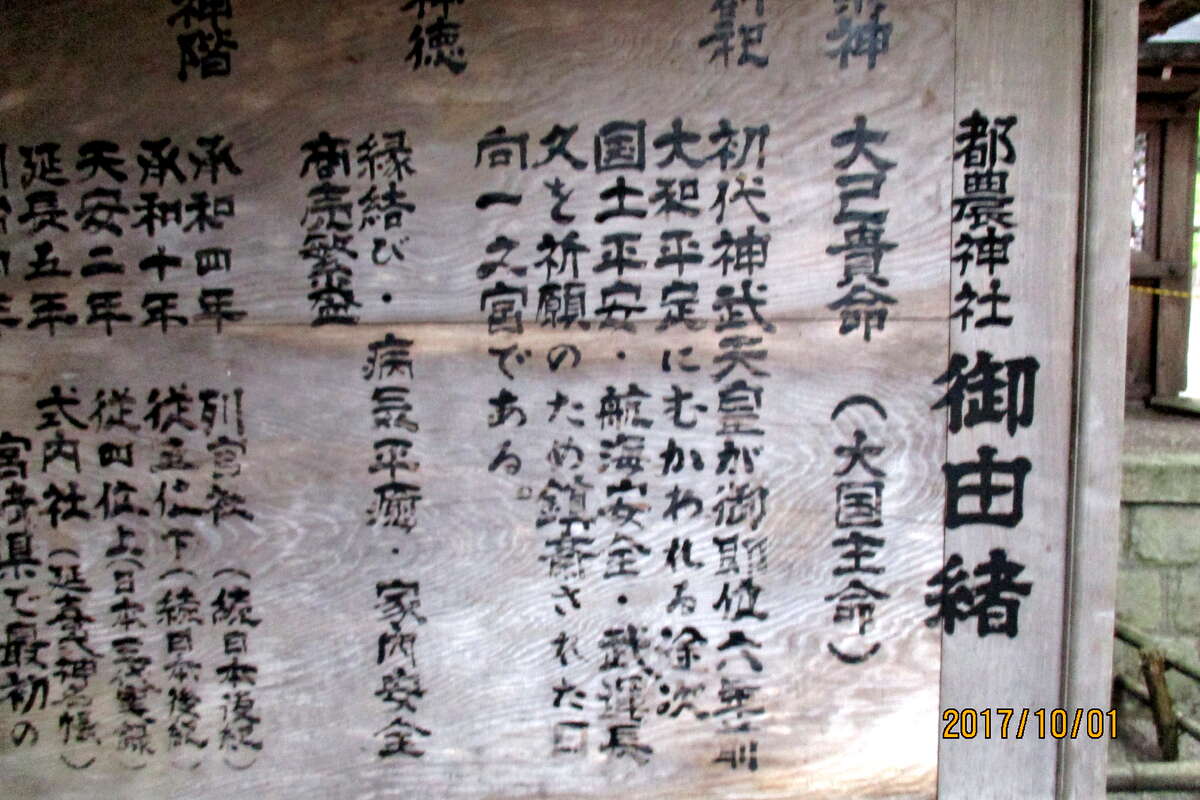 都農神社 御由緒
祭神 大己貴命 (大国主命)
創祀 初代神武天皇が御即位六年前
大和平定にむかわれる途次
国土平安・航海安全・武運長
久を祈願のため鎮斎された日
向一之宮である。
神徳 縁結び・病気平癒・家内安全
商売繁盛
神階 承和四年 列官社 (続日本後紀)
承和十年 従五位下 (続日本後紀)
天安二年 従四位上 (日本三代実録)
延長五年 式内社 (延喜式神名帳)
宮崎県で最初の
2017/10/01